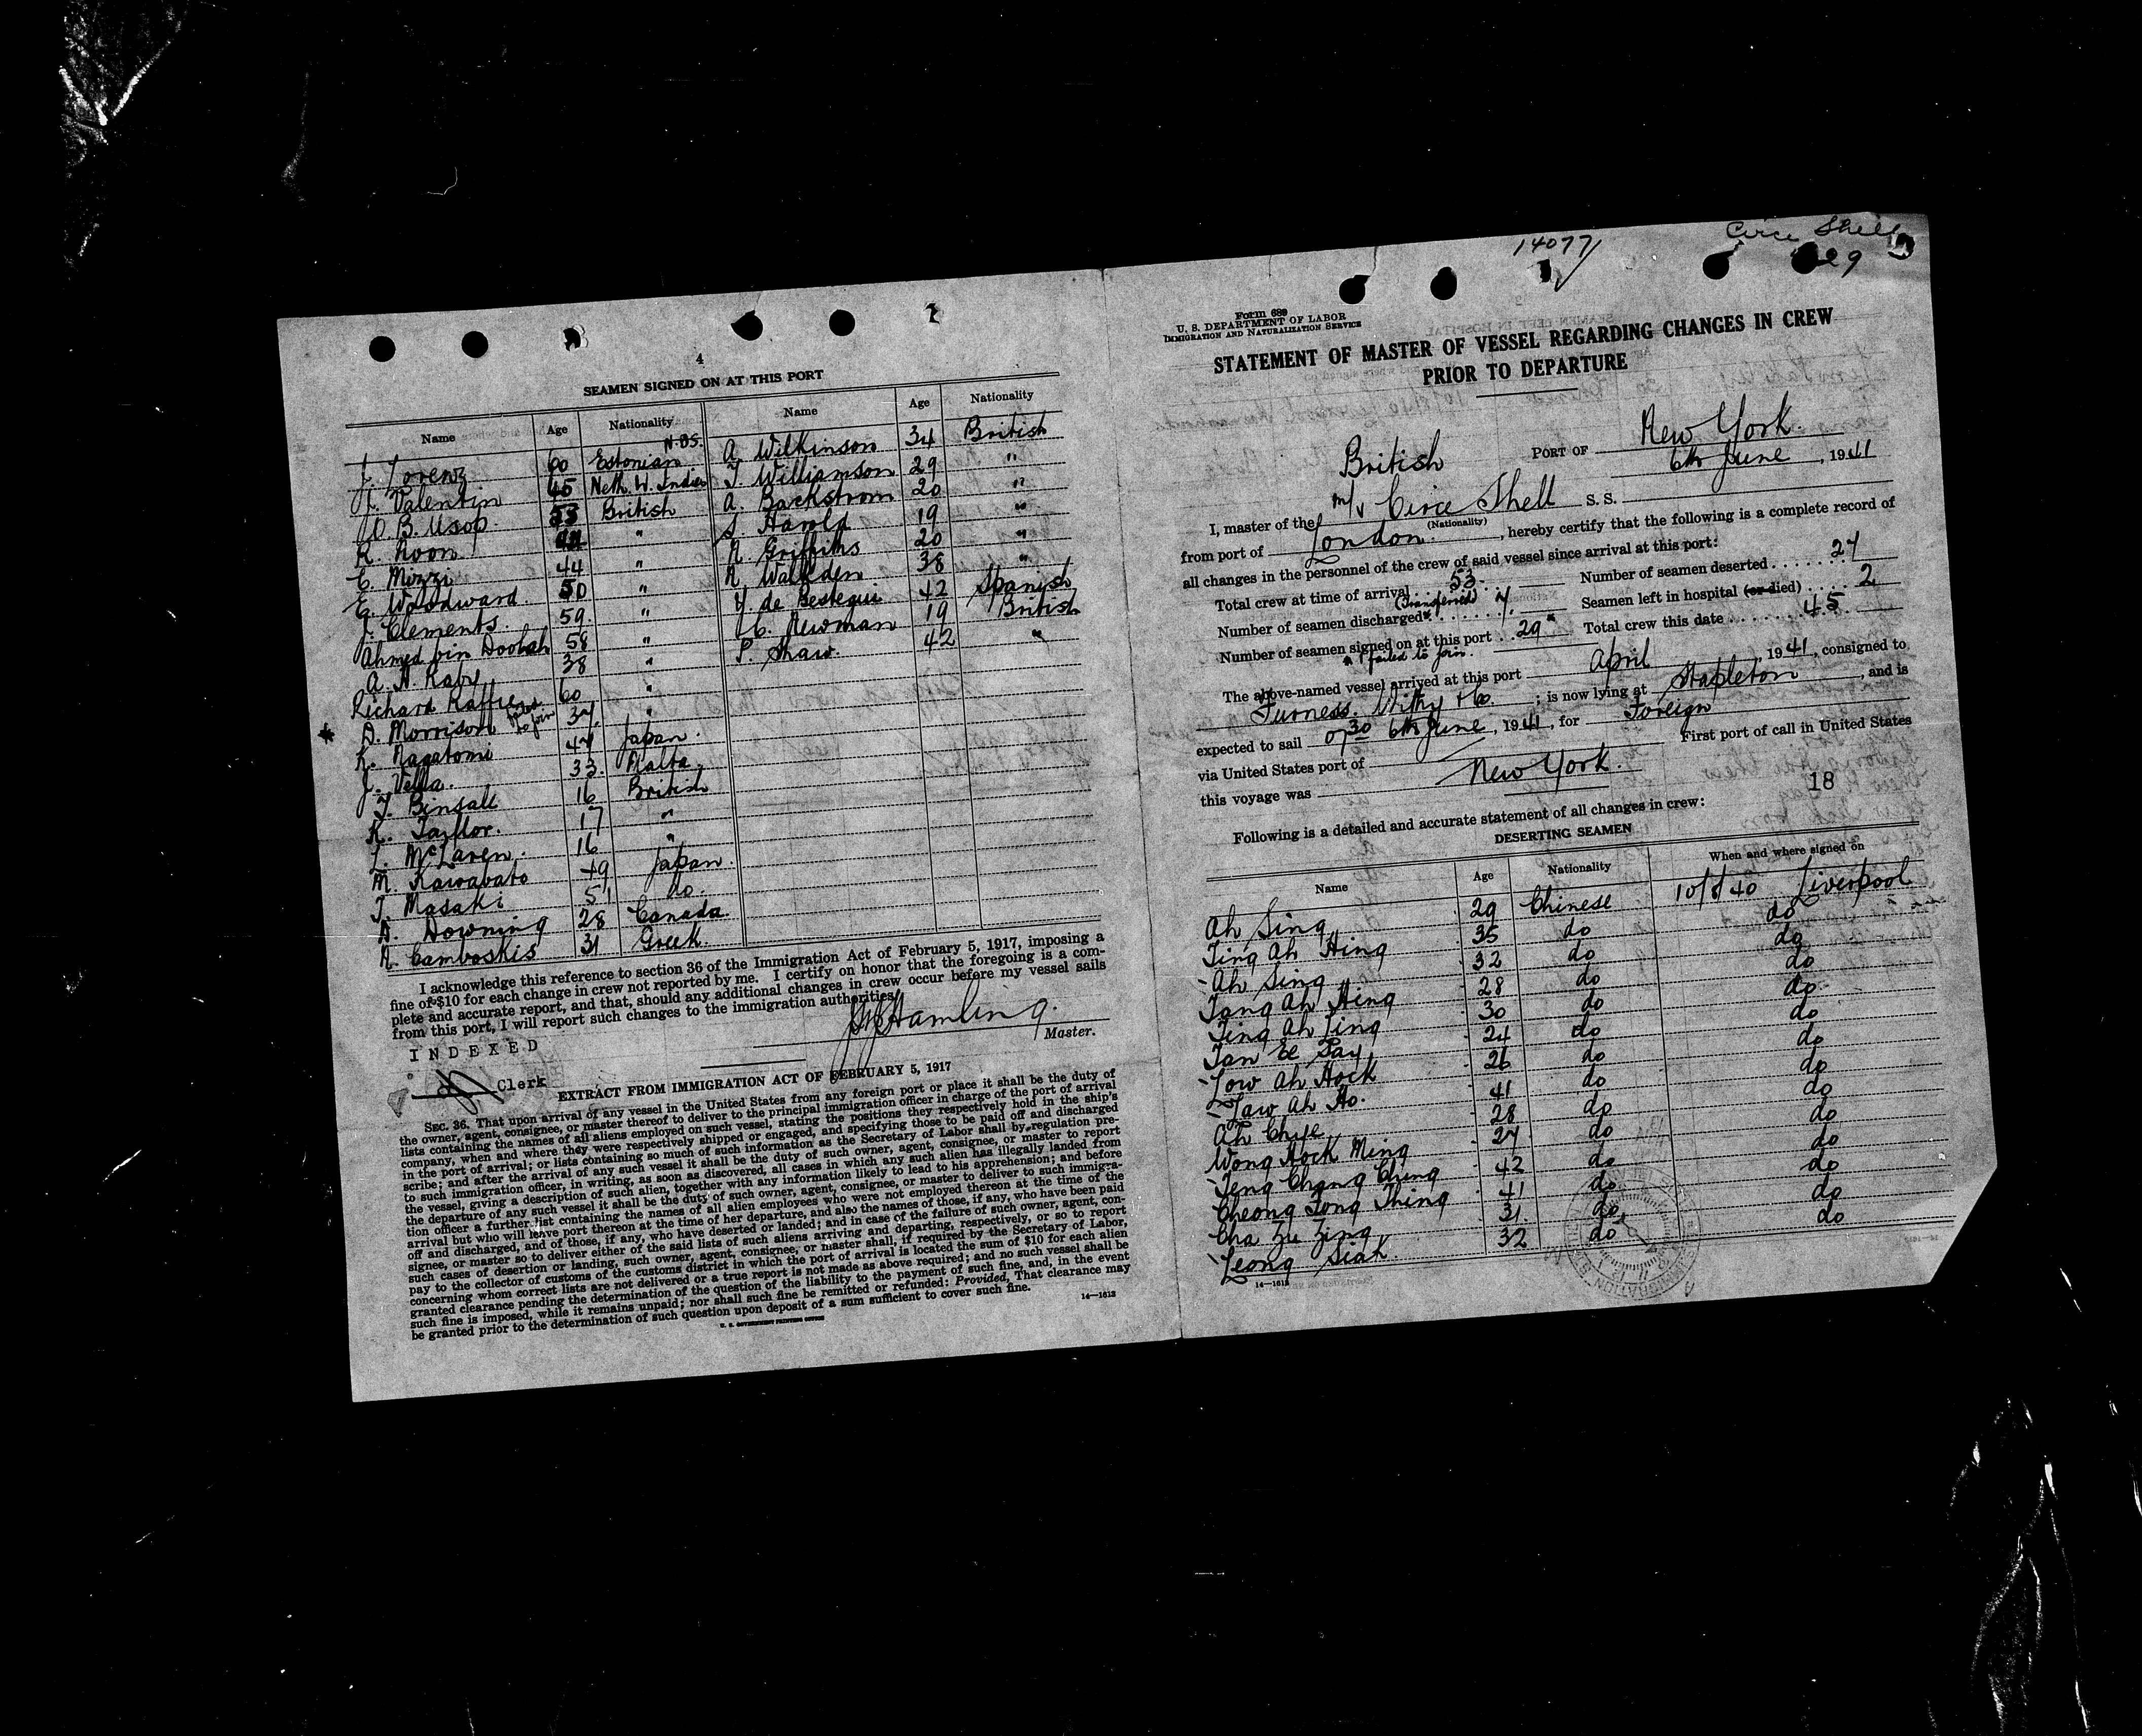 4
SEAMEN SIGNED ON AT THIS PORT
Name Age Nationality Name Age Nationality
J. Lorenz 60 Estonian A. Wilkinson 34 British
Valentin 45 Neth W. Indies J. Williamson 29 "
O. B. Usop. 53 British A. Backstrom 20 "
K. Roon " S. Harold 19 "
C. Mizzi 44 " N. Griffiths 20 "
E. Woodward. 50 " N. Wallden 38 "
J. Clements. 59. " Y. de Bestegui 42 Spanish
Ahmed bin Doolah 58 " C. Newman 19 British
A. H. Raby 38 " P. Shaw. 42 "
Richard Raffie 60 "
* D. Morrison failed to join 37. "
K. Nagatomi 47 Japan.
J. Vella. 33. Malta.
T. Binsall 16 British
K. Taylor. 17 "
L. McLaren. 16 "
M. Kawabato 49 Japan.
T. Masaki 51 do.
D. Downing 28 Canada.
N. Camboskis 31 Greek.
I acknowledge this reference to section 36 of the Immigration Act of February 5, 1917, imposing a
fine of $10 for each change in crew not reported by me. I certify on honor that the foregoing is a com-
plete and accurate report, and that, should any additional changes in crew occur before my vessel sails
from this port, I will report such changes to the immigration authorities.
Hamling.
Master.
INDEXED
Clerk
EXTRACT FROM IMMIGRATION ACT OF FEBRUARY 5, 1917
SEC. 36. That upon arrival of any vessel in the United States from any foreign port or place it shall be the duty of
the owner, agent, consignee, or master thereof to deliver to the principal immigration officer in charge of the port of arrival
lists containing the names of all aliens employed on such vessel, stating the positions they respectively hold in the ship's
company, when and where they were respectively shipped or engaged, and specifying those to be paid off and discharged
in the port of arrival; or lists containing so much of such information as the Secretary of Labor shall by regulation pre-
scribe; and after the arrival of any such vessel it shall be the duty of such owner, agent, consignee, or master to report
to such immigration officer, in writing, as soon as discovered, all cases in which any such alien has illegally landed from
the vessel, giving a description of such alien, together with any information likely to lead to his apprehension; and before
the departure of any such vessel it shall be the duty of such owner, agent, consignee, or master to deliver to such immigra-
tion officer a further list containing the names of all alien employees who were not employed thereon at the time of the
arrival but who will leave port thereon at the time of her departure, and also the names of those, if any, who have been paid
off and discharged, and of those, if any, who have deserted or landed; and in case of the failure of such owner, agent, con-
signee, or master so to deliver either of the said lists of such aliens arriving and departing, respectively, or so to report
such cases of desertion or landing, such owner, agent, consignee, or master shall, if required by the Secretary of Labor,
pay to the collector of customs of the customs district in which the port of arrival is located the sum of $10 for each alien
concerning whom correct lists are not delivered or a true report is not made as above required; and no such vessel shall be
granted clearance pending the determination of the question of the liability to the payment of such fine, and, in the event
such fine is imposed, while it remains unpaid; nor shall such fine be remitted or refunded: Provided, That clearance may
be granted prior to the determination of such question upon deposit of a sum sufficient to cover such fine.
U. S. GOVERNMENT PRINTING OFFICE
14—1612
14077
Circe Shell
29
Form 689
U. S. DEPARTMENT OF LABOR
IMMIGRATION AND NATURALIZATION SERVICE
STATEMENT OF MASTER OF VESSEL REGARDING CHANGES IN CREW
PRIOR TO DEPARTURE
PORT OF New York.
British 6th June, 1941
I, master of the m/v Circe Shell S. S.
(Nationality)
from port of London., hereby certify that the following is a complete record of
all changes in the personnel of the crew of said vessel since arrival at this port:
Total crew at time of arrival 53. Number of seamen deserted 27
Number of seamen discharged (Transferred) 7. Seamen left in hospital (or died) 2
Number of seamen signed on at this port 29* Total crew this date 45
* 1 failed to join.
The above-named vessel arrived at this port April, 1941, consigned to
Furness. Withy & Co; is now lying at Stapleton, and is
expected to sail 0730 6th June, 1941, for Foreign
via United States port of First port of call in United States
this voyage was New York.
18
Following is a detailed and accurate statement of all changes in crew:
DESERTING SEAMEN
Name Age Nationality When and where signed on
Ah Sing 29 Chinese 10/8/40 Liverpool
Ting Ah Hing 35 do do
Ah Sing 32 do do
Tang Ah Hing 28 do do
Ting Ah Ting 30 do do
Tan Ee Say 24 do do
Low Ah Hock 26 do do
Taw Ah Ho. 41 do do
Ah Chye 28 do do
Wong Hock Ming 27 do do
Teng Chang Ching 42 do do
Cheong Tong Thing 41 do do
Cha Zu Zing 31 do do
Leong Siak 32 do do
14—1612